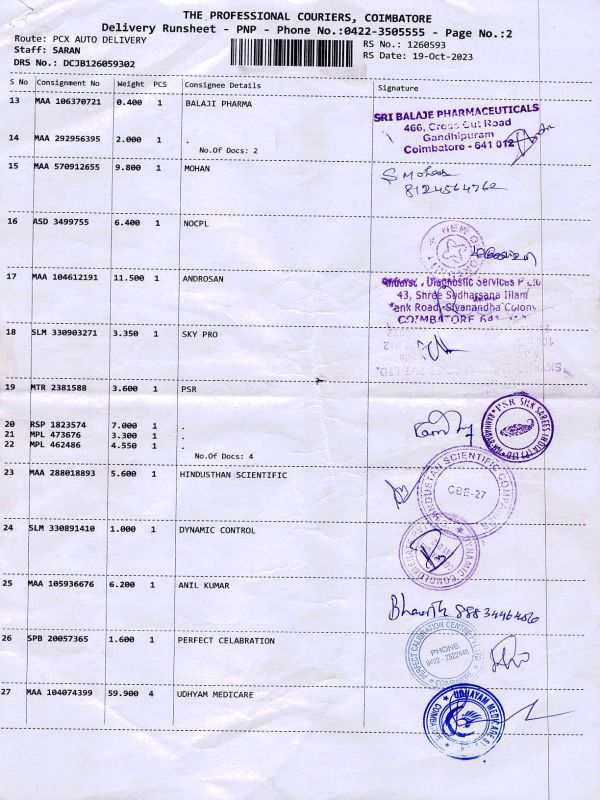 THE PROFESSIONAL COURIERS, COIMBATORE
Delivery Runsheet - PNP - Phone No.:0422-3505555 - Page No.:2
Route: PCX AUTO DELIVERY
RS No.: 1260593
Staff: SARAN
RS Date: 19-Oct-2023
DRS No.: DCJB126059302
S No Consignment No Weight PCS Consignee Details Signature
13 MAA 106370721 0.400 1 BALAJI PHARMA
SRI BALAJE PHARMACEUTICALS
466, Cross Cut Road
Gandhipuram
Coimbatore - 641 012
14 MAA 292956395 2.000 1 .
No.Of Docs: 2
15 MAA 570912655 9.800 1 MOHAN
S Mohan
8124564762
16 ASD 3499755 6.400 1 NOCPL
NEW
17 MAA 104612191 11.500 1 ANDROSAN
Diagnostic Services P Ltd
43, Shree Sudharsana Illam
Tank Road, Sivanandha Colony
COIMBATORE 641
18 SLM 330903271 3.350 1 SKY PRO
PVT LTD.
19 MTR 2381588 3.600 1 PSR
P.S.R. SILK SAREES INDIA (P) LTD
20 RSP 1823574 7.000 1 .
21 MPL 473676 3.300 1 .
22 MPL 462486 4.550 1 .
No.Of Docs: 4
23 MAA 288018893 5.600 1 HINDUSTHAN SCIENTIFIC
HINDUSTAN SCIENTIFIC COMPANY
CBE-27
24 SLM 330891410 1.000 1 DYNAMIC CONTROL
DYNAMIC
25 MAA 105936676 6.200 1 ANIL KUMAR
Bharath 8883446456
26 SPB 20057365 1.600 1 PERFECT CELABRATION
PERFECT CALIBRATION CENTRE
PHONE
0422 - 2522440
COIMBATORE
27 MAA 104074399 59.900 4 UDHYAM MEDICARE
UDHAYAM MEDICARE